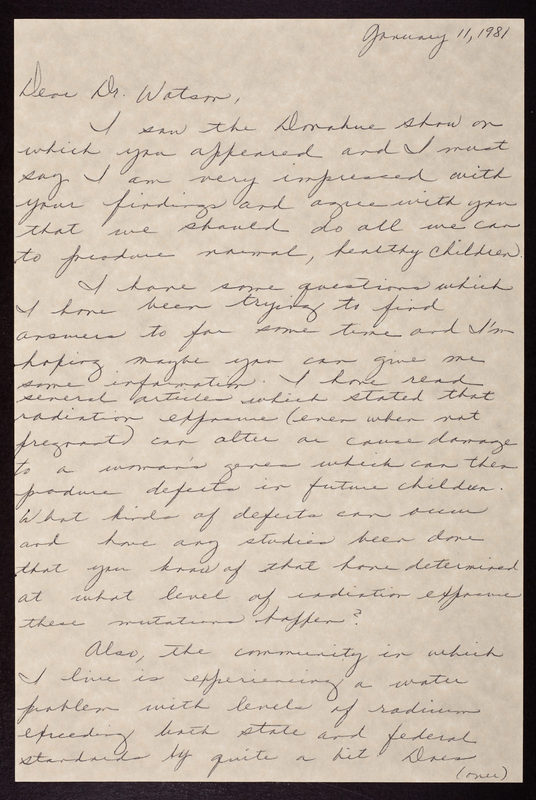 January 11, 1981
Dear Dr. Watson,
I saw the Donahue show on
which you appeared and I must
say I am very impressed with
your findings and agree with you
that we should do all we can
to produce normal, healthy children.
I have some questions which
I have been trying to find
answers to for some time and I'm
hoping maybe you can give me
some information. I have read
several articles which stated that
radiation exposure (even when not
pregnant) can alter or cause damage
to a woman's genes which can then
produce defects in future children.
What kinds of defects can occur
and have any studies been done
that you know of that have determined
at what level of radiation exposure
these mutations happen?
Also, the community in which
I live is experiencing a water
problem with levels of radium
exceeding both state and federal
standards by quite a bit. Does
(over)